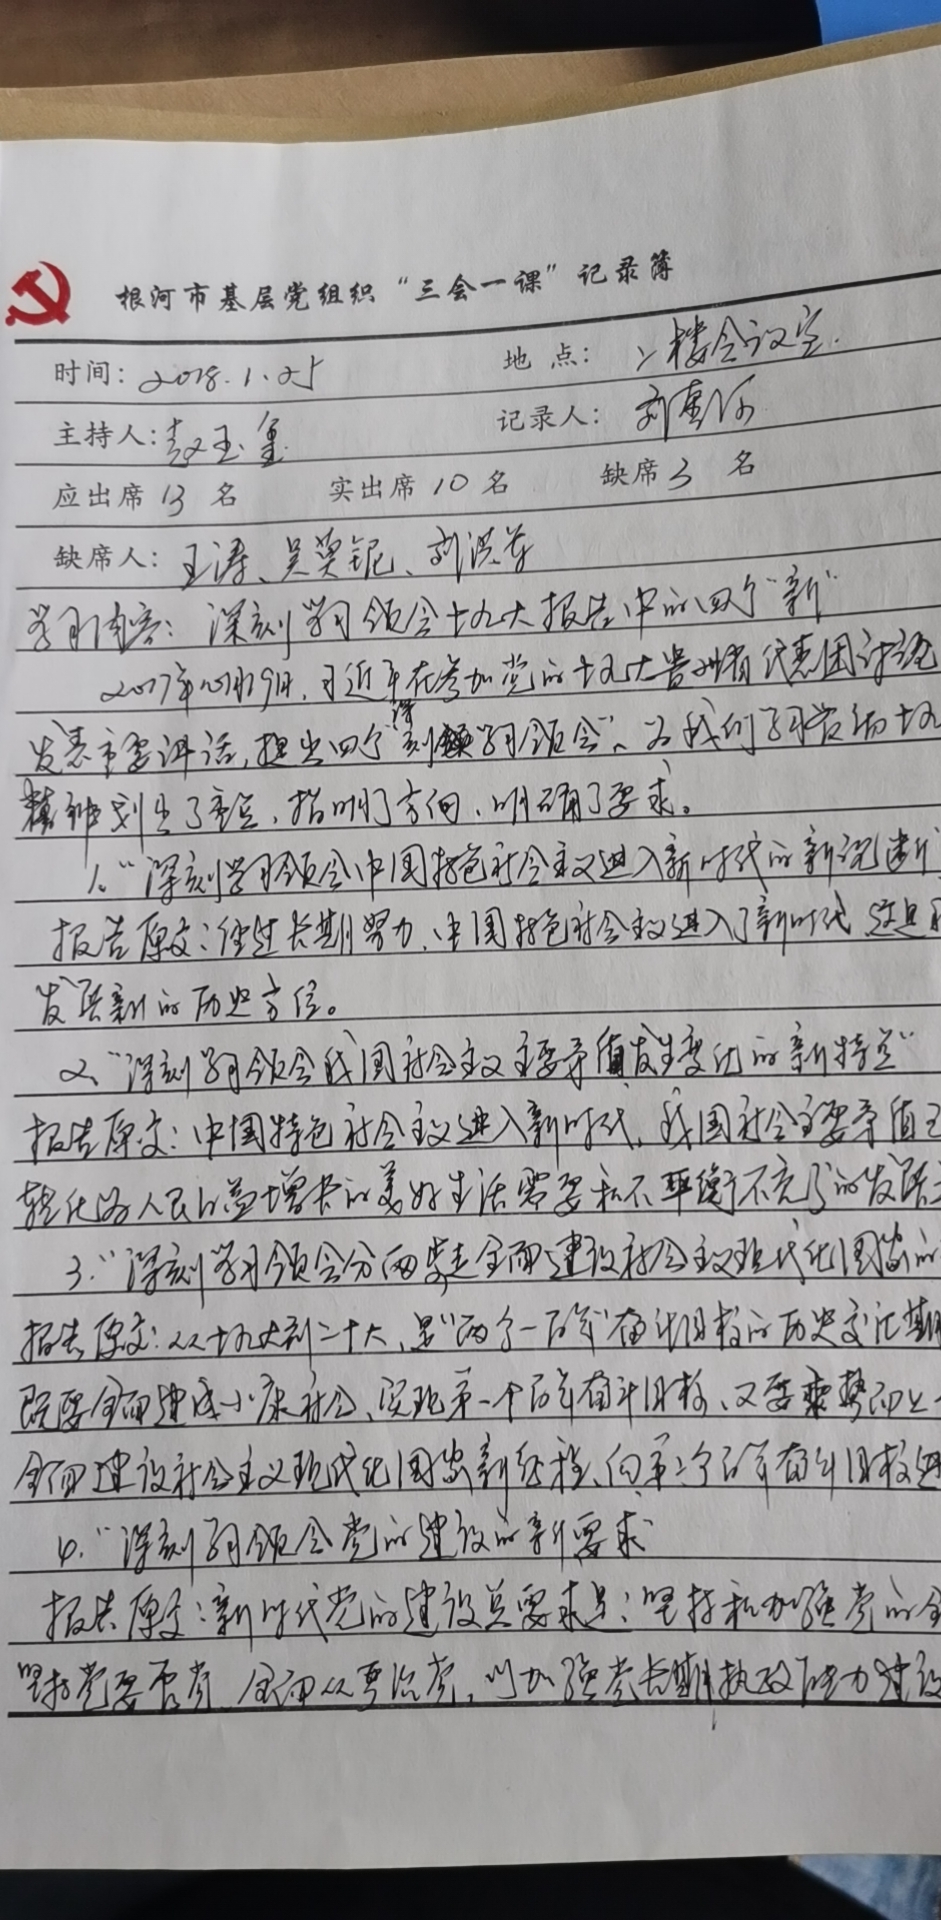 根河市基层党组织“三会一课”记录簿
时间：2018.1.25 地点：二楼会议室.
主持人：赵玉 记录人：刘
应出席 13 名 实出席 10 名 缺席 3 名
缺席人：王涛、吴英铌、刘洪
学习内容：深刻学习领会十九大报告中的四个“新”
2017年10月19日，习近平在参加党的十九大贵州省代表团讨论
发表重要讲话，提出四个“深刻学习领会”、为我们学习贯彻十九
精神划出了重点，指明了方向，明确了要求。
1、“深刻学习领会中国特色社会主义进入新时代的新论断
报告原文：经过长期努力，中国特色社会主义进入了新时代 这是
发展新的历史方位。
2、“深刻学习领会我国社会主义主要矛盾发生变化的新特点”
报告原文：中国特色社会主义进入新时代，我国社会主要矛盾已
转化为人民日益增长的美好生活需要和不平衡不充分的发展
3.“深刻学习领会分两步走全面建设社会主义现代化国家的
报告原文：从十九大到二十大，是“两个一百年”奋斗目标的历史交汇期
既要全面建成小康社会、实现第一个百年奋斗目标、又要乘势而上
全面建设社会主义现代化国家新征程、向第二个百年奋斗目标进
4.“深刻学习领会党的建设的新要求
报告原文：新时代党的建设总要求是：坚持和加强党的全
坚持党要管党 全面从严治党，以加强党长期执政能力建设